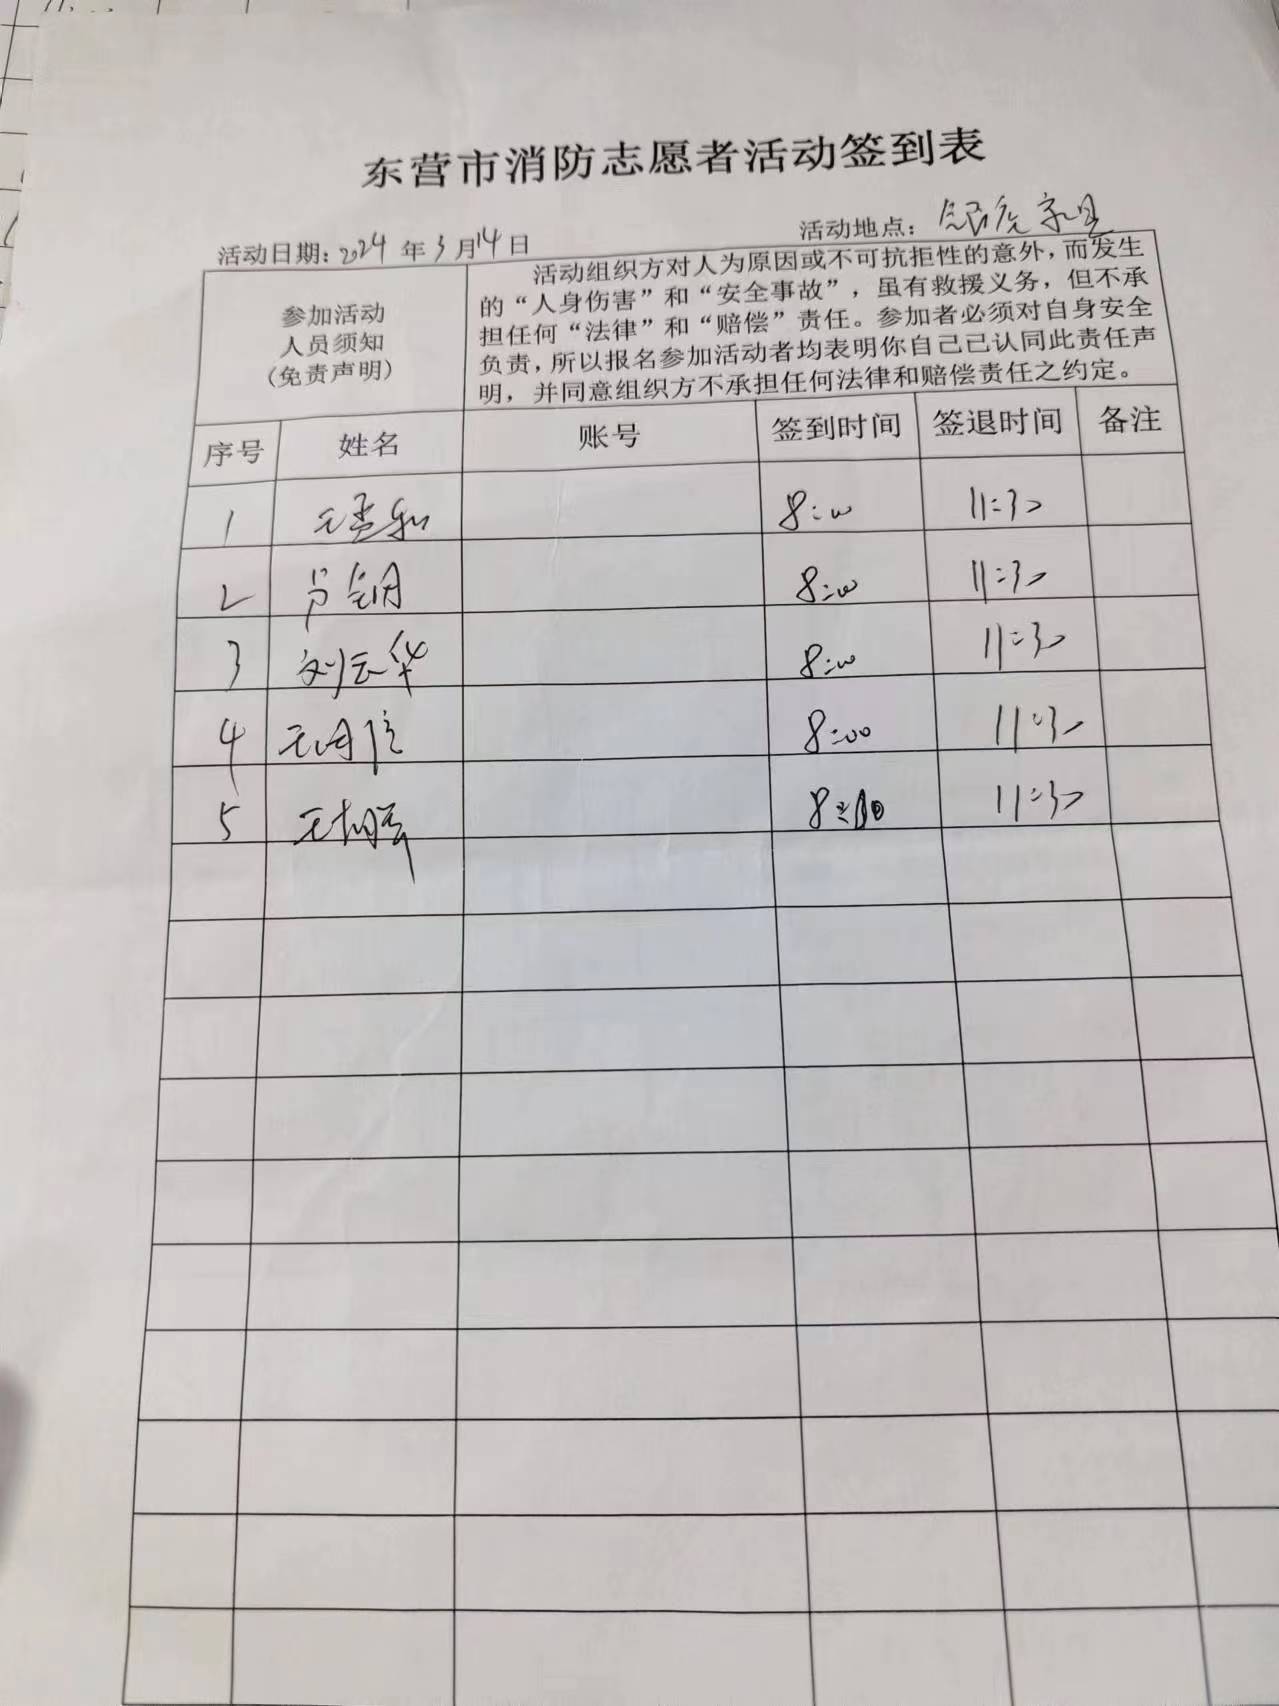 东营市消防志愿者活动签到表
活动日期：2024年3月14日 活动地点：
参加活动
人员须知
(免责声明)
活动组织方对人为原因或不可抗拒性的意外，而发生
的“人身伤害”和“安全事故”，虽有救援义务，但不承
担任何“法律”和“赔偿”责任。参加者必须对自身安全
负责，所以报名参加活动者均表明你自己已认同此责任声
明，并同意组织方不承担任何法律和赔偿责任之约定。
序号 姓名 账号 签到时间 签退时间 备注
1 8:00 11:30
2 8:00 11:30
3 刘云华 8:00 11:30
4 8:00 11:30
5 8:00 11:30